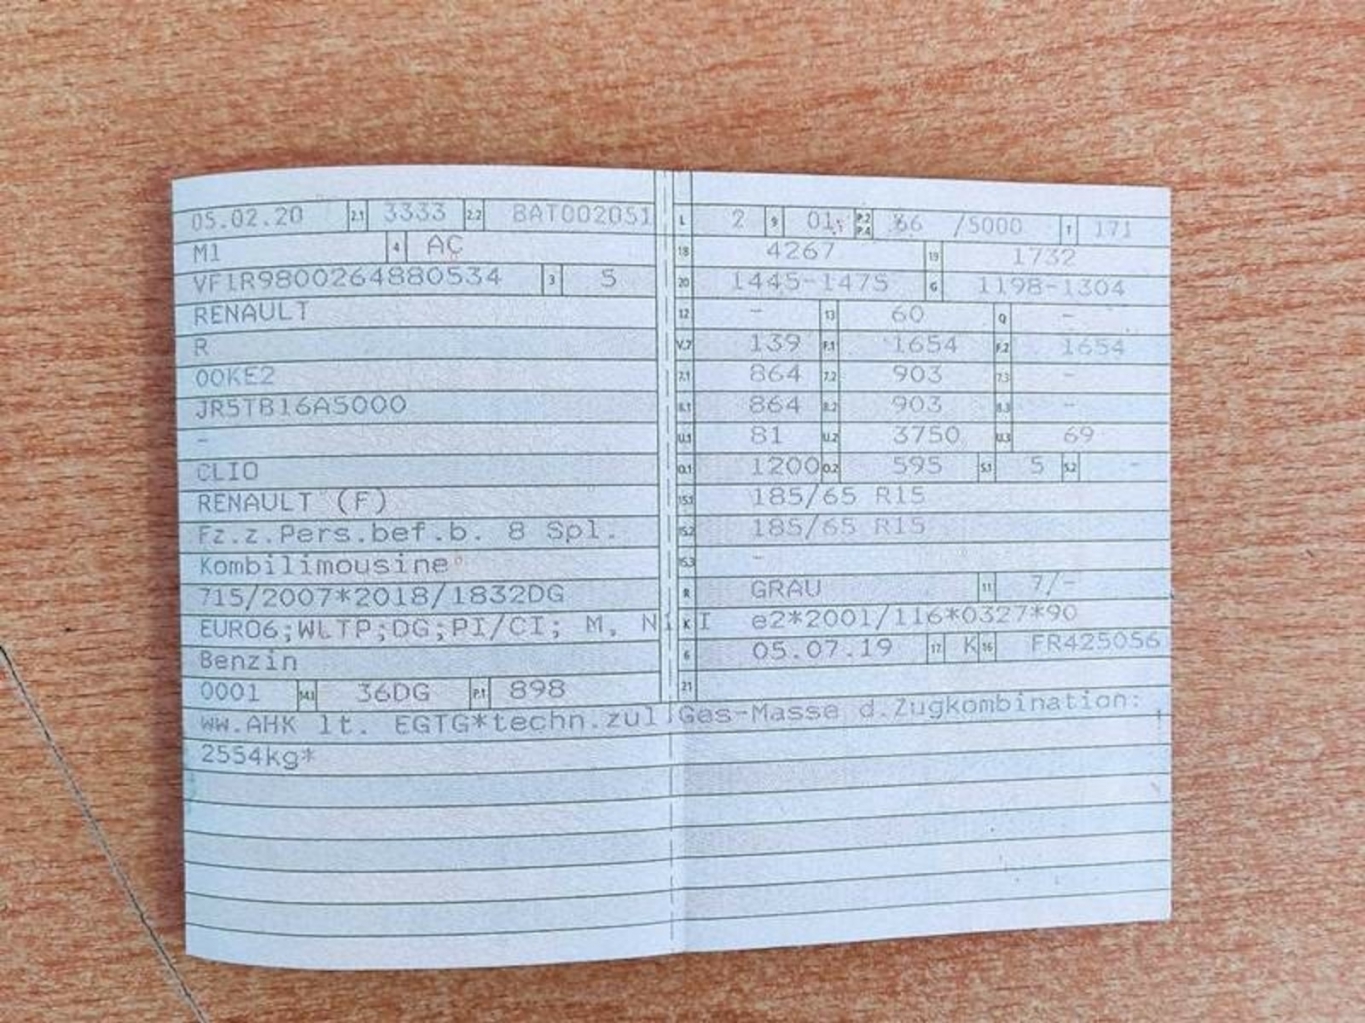 05.02.20 2.1 3333 2.2 BAT002051
M1 4 AC
VF1R9800264880534 3 5
RENAULT
R
00KE2
JR5TB16A5000
-
CLIO
RENAULT (F)
Fz.z.Pers.bef.b. 8 Spl.
Kombilimousine
715/2007*2018/1832DG
EURO6;WLTP;DG;PI/CI; M, N1 I
Benzin
0001 14.1 36DG P.1 898
L 2 9 01 P.2 P.4 66 /5000 T 171
18 4267 19 1732
20 1445-1475 G 1198-1304
12 - 13 60 Q -
V.7 139 F.1 1654 F.2 1654
7.1 864 7.2 903 7.3 -
8.1 864 8.2 903 8.3 -
U.1 81 U.2 3750 U.3 69
O.1 1200 O.2 595 S.1 5 S.2 -
15.1 185/65 R15
15.2 185/65 R15
15.3 -
R GRAU 11 7/-
K e2*2001/116*0327*90
6 05.07.19 17 K 16 FR425056
21
ww.AHK lt. EGTG*techn.zul.Ges-Masse d.Zugkombination:
2554kg*